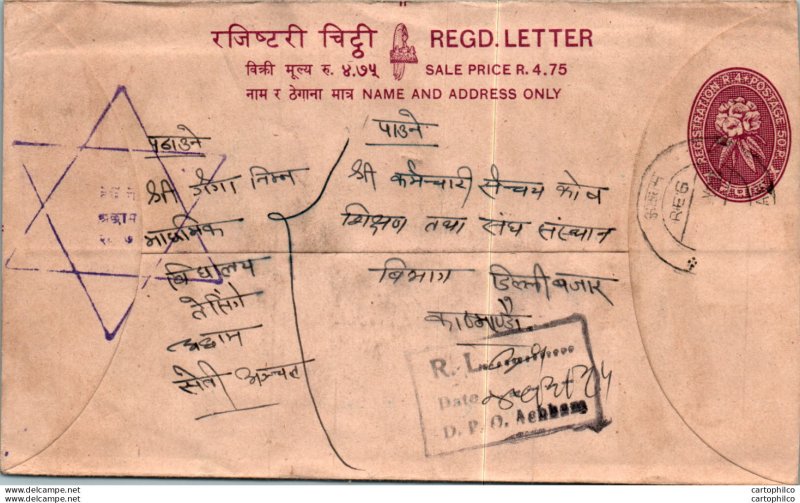 रजिष्टरी चिट्ठी REGD. LETTER
विक्री मूल्य रु. ४.७५ SALE PRICE R. 4.75
नाम र ठेगाना मात्र NAME AND ADDRESS ONLY
REGISTRATION R.4 POSTAGE 50P.
पठाउने
श्री
निम्न
माध्यमिक
विद्यालय
अछाम
सेती अञ्चल
पाउने
श्री कर्मचारी सञ्चय कोष
शिक्षण तथा संघ संस्थान
विभाग डिल्लीबजार
काठमाण्डौ.
अछाम
REG
R. L.
Date
D. P. O. Achham
cartophilco
cartophilco
cartophilco
cartophilco